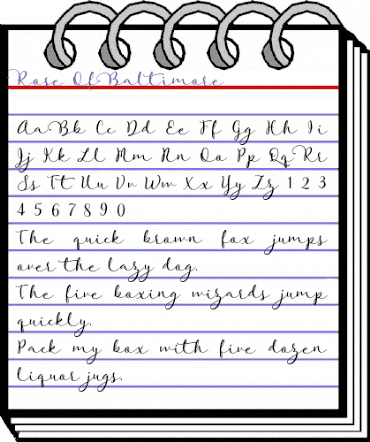 Rose Of Baltimore
Aa Bb Cc Dd Ee Ff Gg Hh Ii
Jj Kk Ll Mm Nn Oo Pp Qq Rr
Ss Tt Uu Vv Ww Xx Yy Zz 1 2 3
4 5 6 7 8 9 0
The quick brown fox jumps
over the lazy dog.
The five boxing wizards jump
quickly.
Pack my box with five dozen
liquor jugs.